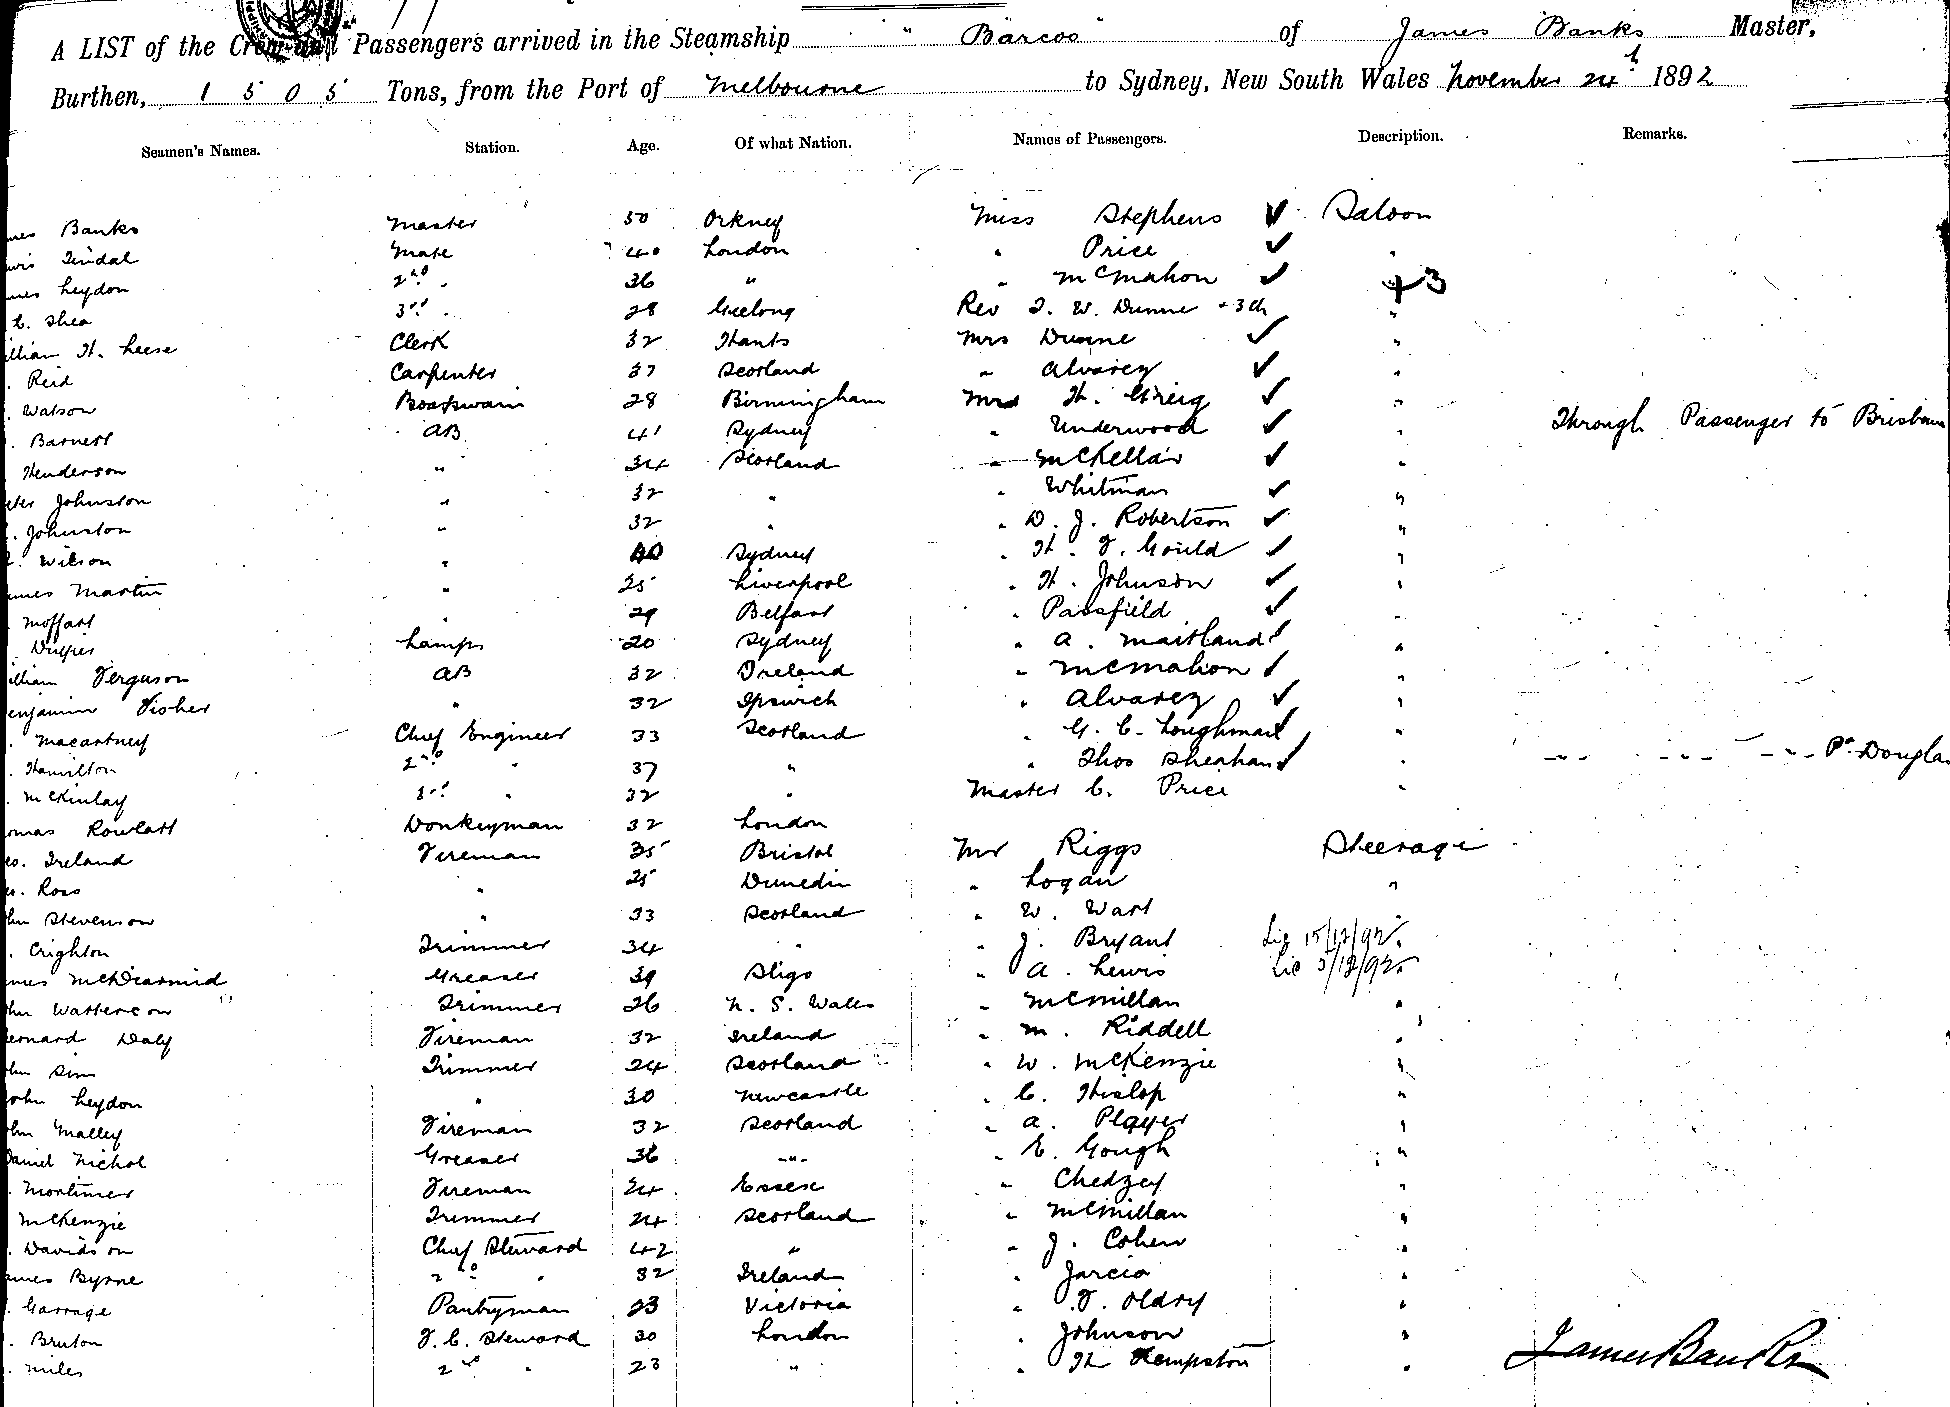 A LIST of the Crew and Passengers arrived in the Steamship "Barcoo" of James Banks Master,
Burthen, 1505 Tons, from the Port of Melbourne to Sydney, New South Wales November 24th 1892
Seamen's Names. Station. Age. Of what Nation. Names of Passengers. Description. Remarks.
mes Banks Master 50 Orkney Miss Stephens ✓ Saloon
Tindal Mate 40 London " Price ✓ "
mes Leydon 2nd " 36 " " McMahon ✓ +3
C. Shea 3rd " 28 Geelong Rev T. W. Dunne + 3 ch "
illiam H. Leese Clerk 32 Hants Mrs Dunne ✓ "
. Reid Carpenter 37 Scotland " Alvarez ✓ "
. Watson Boatswain 28 Birmingham H. Greig ✓ "
. Barnett AB 41 Sydney " Underwood ✓ " Through Passenger to Brisban
Henderson " 34 Scotland " McKellar ✓ "
eter Johnston " 32 " " Whitman ✓ "
. Johnston " 32 " " D. J. Robertson ✓ "
. Wilson " 40 Sydney " H. F. Gould ✓ "
ames Martin " 25 Liverpool " H. Johnson ✓ "
. Moffatt " 29 Belfast " Passfield ✓ "
Lamps 20 Sydney " A. Maitland ✓ "
illiam Ferguson AB 32 Ireland " McMahon ✓ "
enjamin Fisher " 32 Ipswich " Alvarez ✓ "
. Macartney Chief Engineer 33 Scotland " G. C. Loughman ✓ "
. Hamilton 2nd " 37 " " Thos Sheahan ✓ " Pr Dougla
. McKinlay 3rd " 32 " Master C. Price "
omas Rowlatt Donkeyman 32 London
eo. Ireland Fireman 35 Bristol Mr Riggs Steerage
. Ross " 25 Dunedin " Logan "
ohn Stevenson " 33 Scotland " W. Watt "
. Crighton Trimmer 34 " " J. Bryant 15/12/92
ames McDiarmid Greaser 39 Sligo " A. Lewis 5/12/92
ohn Watterson Trimmer 26 N. S. Wales " McMillan "
ernard Daly Fireman 32 Ireland " M. Riddell "
ohn Sim Trimmer 24 Scotland " W. McKenzie "
ohn Leydon " 30 Newcastle " C. Hislop "
ohn Malley Fireman 32 Scotland " A. Player "
Daniel Nichol Greaser 36 " " E. Gough "
. Mortimer Fireman 24 Essex " Chedzey "
McKenzie Trimmer 24 Scotland " McMillan "
. Davidson Chief Steward 42 " " J. Cohen "
ames Byrne 2nd " 32 Ireland " Jarcia "
. Garrage Pantryman 23 Victoria " T. Oldry "
. Bruton F. C. Steward 30 London " Johnson "
. Miles 2nd " 23 " " H. Kempston "
James Banks